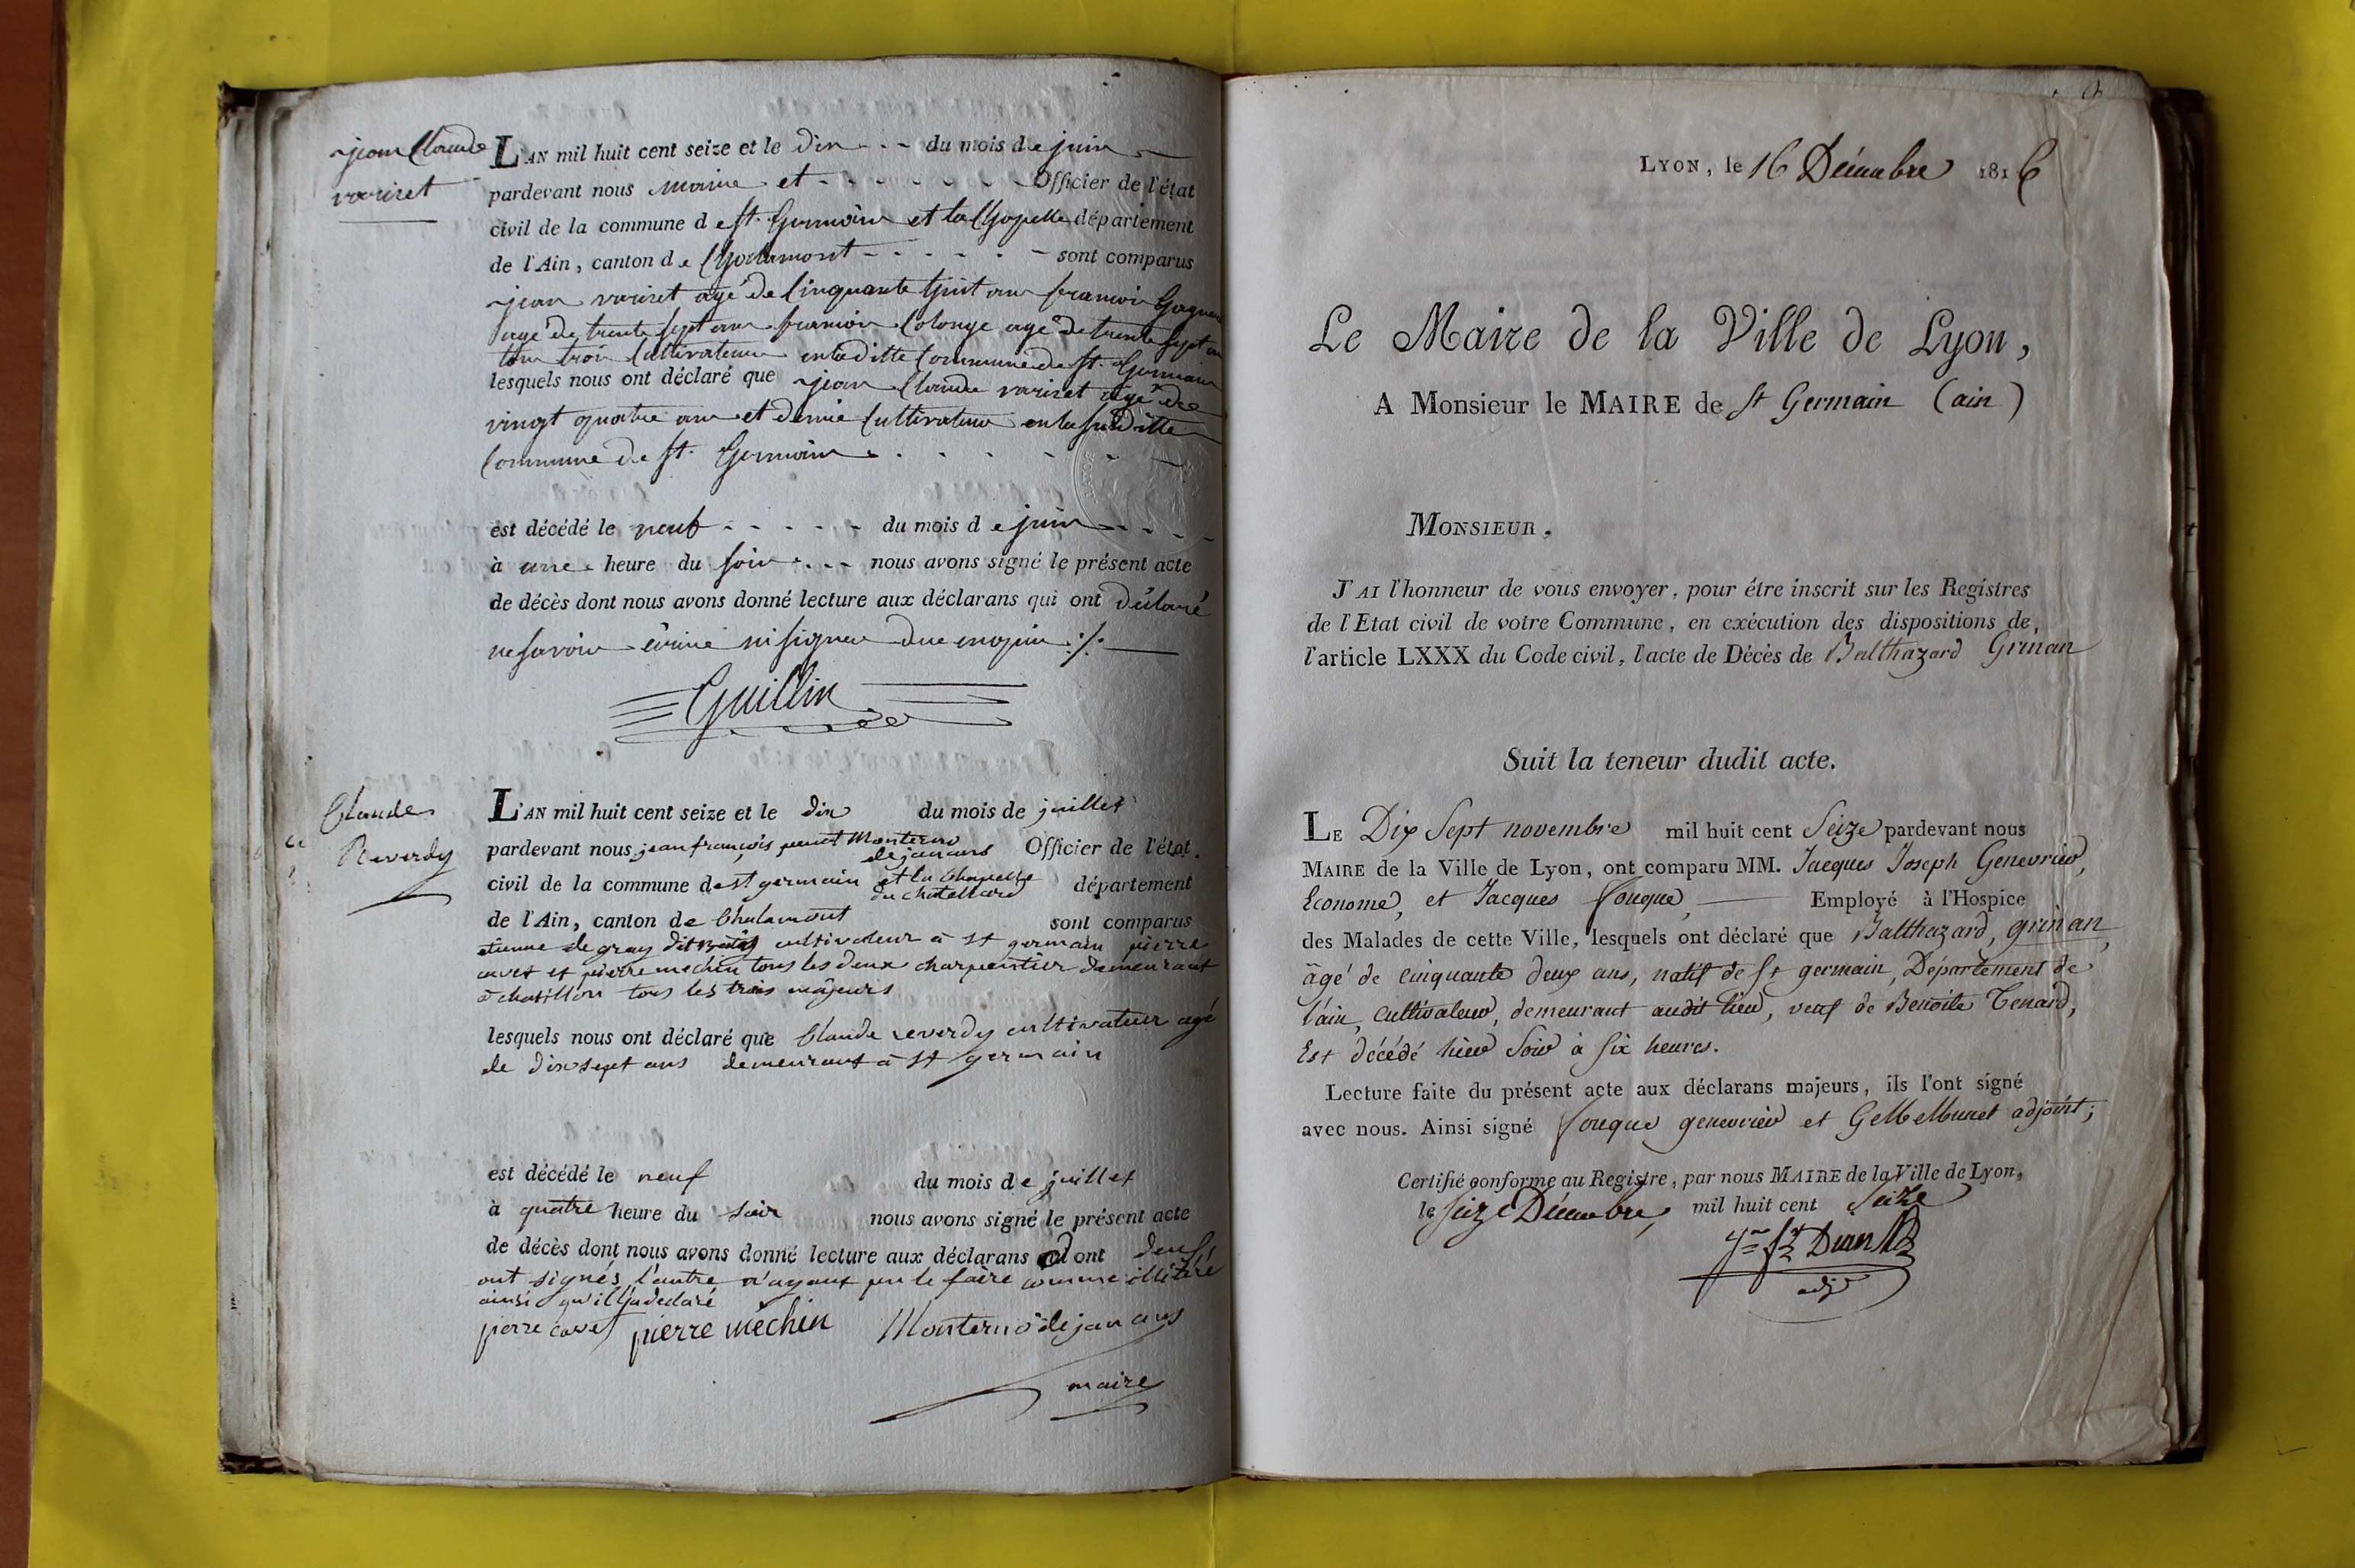 jean Claude
variset
L'AN mil huit cent seize et le dix du mois de juin
pardevant nous maire et Officier de l'état
civil de la commune de st. Germain et la Chapelle département
de l'Ain, canton de Chalamont sont comparus
jean variset agé de Cinquante huit ans francois
agé de trente sept ans francois Colonge agé de trente sept ans
tous trois Cultivateurs en la ditte Commune de st. Germain
lesquels nous ont déclaré que jean Claude variset agé de
vingt quatre ans et demie Cultivateur en la suditte
Commune de st. Germain
est décédé le neuf du mois de juin
à une heure du soir nous avons signé le présent acte
de décès dont nous avons donné lecture aux déclarans qui ont déclaré
ne savoir écrire ni signer
Guillin
Claude
Reverdy
L'AN mil huit cent seize et le dix du mois de juillet
pardevant nous jean françois Monterno
dejanans Officier de l'état
civil de la commune de st germain et la Chapelle
du chatellard département
de l'Ain, canton de Chalamont sont comparus
etienne de gray dit cultivateur à st germain pierre
cavet et pierre mechin tous les deux charpentier demeurant
a chatillon tous les trois majeurs
lesquels nous ont déclaré que Claude reverdy cultivateur agé
de dix sept ans demeurant à st germain
est décédé le neuf du mois de juillet
à quatre heure du soir nous avons signé le présent acte
de décès dont nous avons donné lecture aux déclarans dont deux
ont signés l'autre n'ayant pu le faire comme illitéré
ainsi qu'il l'a declaré
pierre cavet pierre mechin Monterno dejanans
maire
LYON, le 16 Décembre 1816
Le Maire de la Ville de Lyon,
A Monsieur le MAIRE de st Germain (ain)
MONSIEUR,
J'AI l'honneur de vous envoyer, pour être inscrit sur les Registres
de l'Etat civil de votre Commune, en exécution des dispositions de
l'article LXXX du Code civil, l'acte de Décès de Balthazard Grinan
Suit la teneur dudit acte.
LE Dix Sept novembre mil huit cent Seize pardevant nous
MAIRE de la Ville de Lyon, ont comparu MM. Jacques Joseph Genevrier,
Econome, et Jacques Fouque, Employé à l'Hospice
des Malades de cette Ville, lesquels ont déclaré que Balthazard, grinan,
âgé de cinquante deux ans, natif de St germain, Département de
l'ain, cultivateur, demeurant audit lieu, veuf de Benoite Tenard,
Est décédé hier soir à six heures.
Lecture faite du présent acte aux déclarans majeurs, ils l'ont signé
avec nous. Ainsi signé Fouque genevrier et adjoint;
Certifié conforme au Registre, par nous MAIRE de la Ville de Lyon,
le seize Décembre, mil huit cent Seize
adj